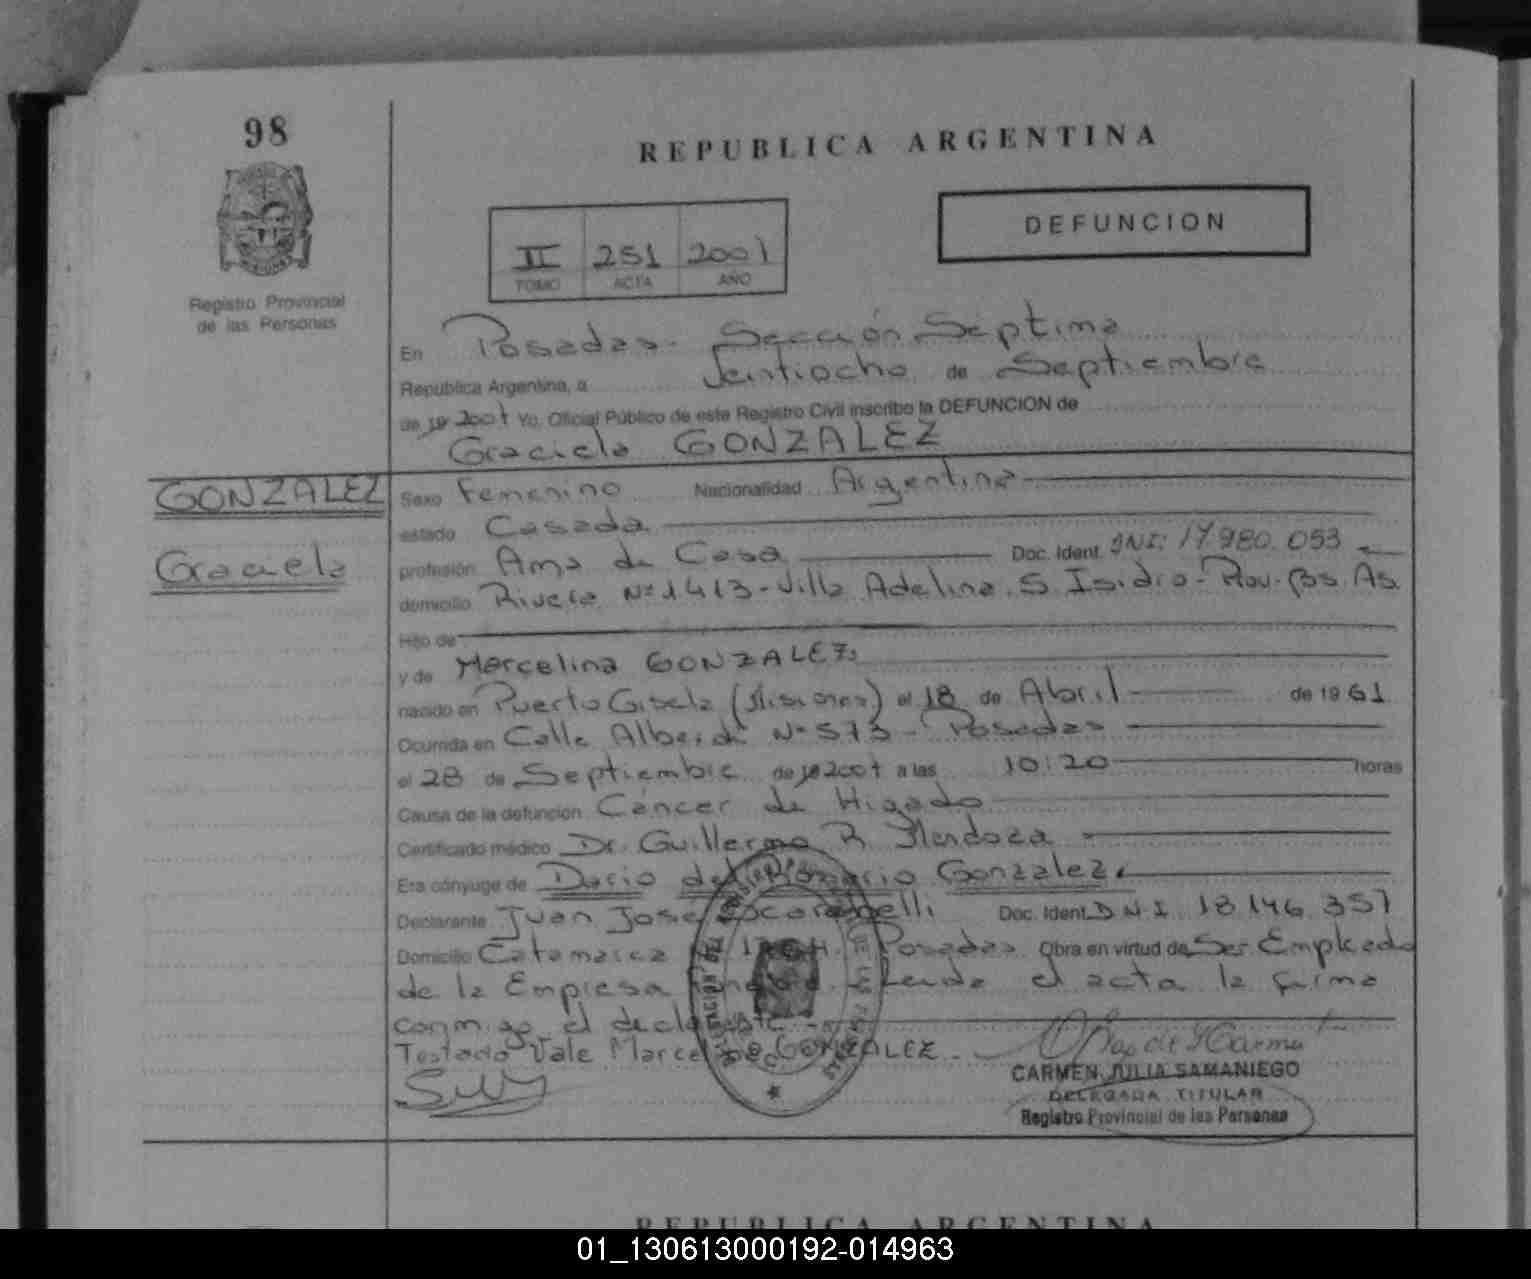 98
REPUBLICA ARGENTINA
DEFUNCION
II 251 2001
TOMO ACTA AÑO
Registro Provincial
de las Personas
En Posadas - Sección Septima
República Argentina, a Veintiocho de Septiembre
de 19 2001 Yo, Oficial Público de este Registro Civil inscribo la DEFUNCION de
Graciela GONZALEZ
GONZALEZ
Graciela
Sexo Femenino Nacionalidad Argentina
estado Casada
profesión Ama de Casa Doc. Ident. DNI: 17.980.053
domicilio Rivera Nº 1413 - Villa Adelina. S. Isidro - Prov. Bs. As.
Hijo de
y de Marcelina GONZALEZ
nacido en Puerto Gisela (Misiones) el 18 de Abril de 19 61
Ocurrida en Calle Alberdi Nº 573 - Posadas
el 28 de Septiembre de 19 2001 a las 10:20 horas
Causa de la defunción Cáncer de Higado
Certificado médico Dr. Guillermo R. Mendoza
Era cónyuge de Dario del Rosario Gonzalez
Declarante Juan Jose Doc. Ident. D.N.I. 18.146.357
Domicilio Catamarca Posadas Obra en virtud de Ser Empleado
de la Empresa el acta la firma
conmigo el declarante
Testado Vale Marcelina GONZALEZ
CARMEN JULIA SAMANIEGO
DELEGADA TITULAR
Registro Provincial de las Personas
REPUBLICA ARGENTINA
01_130613000192-014963